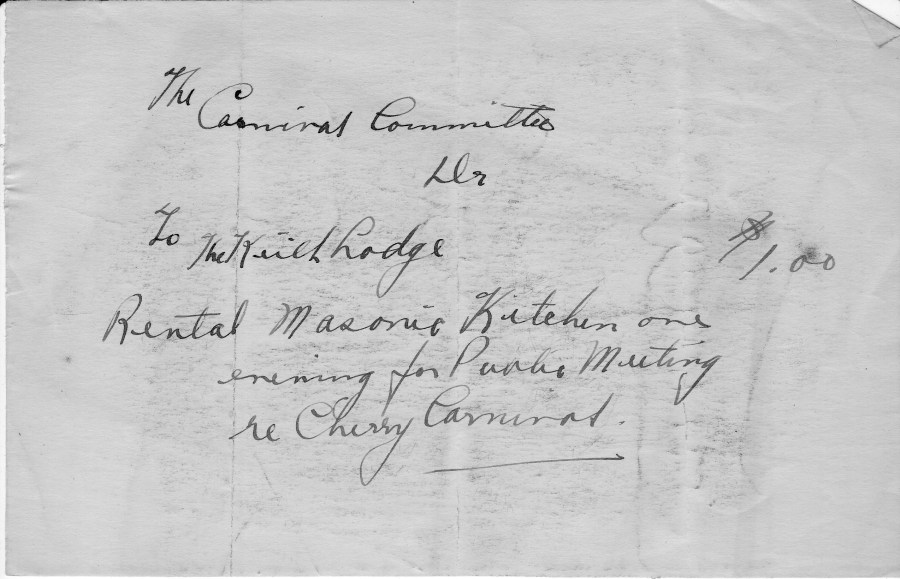 The
Carnival Committee
Dr
To The Keith Lodge $1.00
Rental Masonic Kitchen one
evening for Public Meeting
re Cherry Carnival.